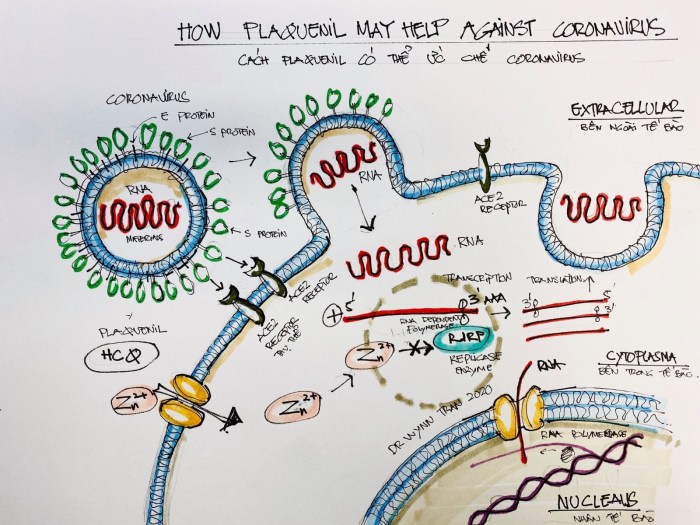 HOW PLAQUENIL MAY HELP AGAINST CORONAVIRUS
CÁCH PLAQUENIL CÓ THỂ ỨC CHẾ CORONAVIRUS
CORONAVIRUS
E PROTEIN
S PROTEIN
RNA
MATERIALS
S PROTEIN
RNA
ACE2
RECEPTOR
EXTRACELLULAR
BÊN NGOÀI TẾ BÀO
ACE2
RECEPTOR
ACE2
RECEPTOR
RNA
TRANSCRIPTION
TRANSLATION
+ 5'
3' AAA
5'
3'
3'
RNA DEPENDENT
POLYMERASE
RdRP
REPLICASE
ENZYME
PLAQUENIL
HCQ
Zn2+
Zn2+
Zn2+
DR WYNN TRAN 2020
RNA
CYTOPLASMA
BÊN TRONG TẾ BÀO
RNA POLYMERASE
NUCLEAUS
NHÂN TẾ BÀO